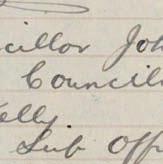 cillor Joh
Council
elly.
Sub Off